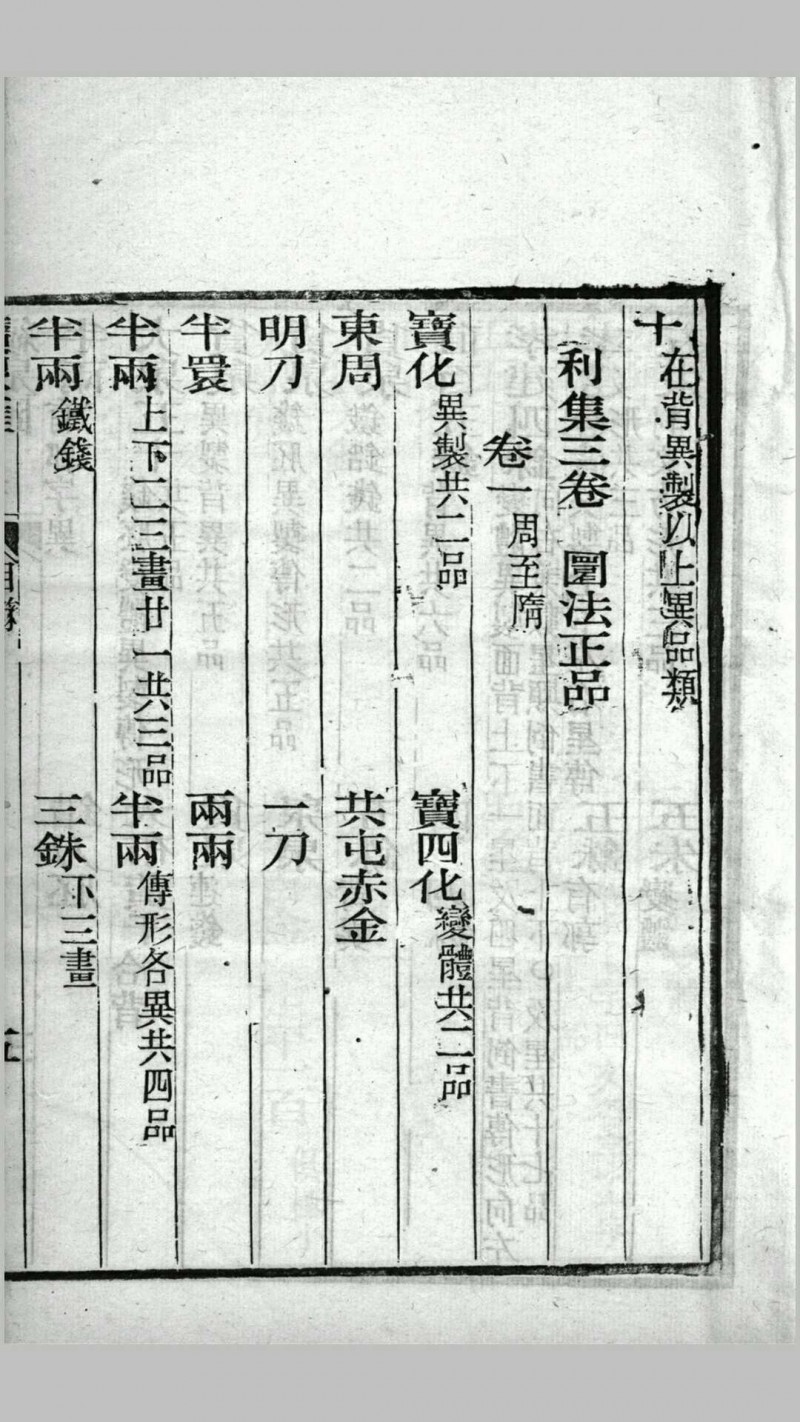 十在背異製以上異品類
利集三卷 圜法正品
卷一周至隋
寶化異製共二品 寶四化變體共二品
東周 共屯赤金
明刀 一刀
半睘 兩兩
半兩上下二三畫廿一共三品 半兩傳形各異共四品
半兩鐵錢 三銖下三畫
目錄 五